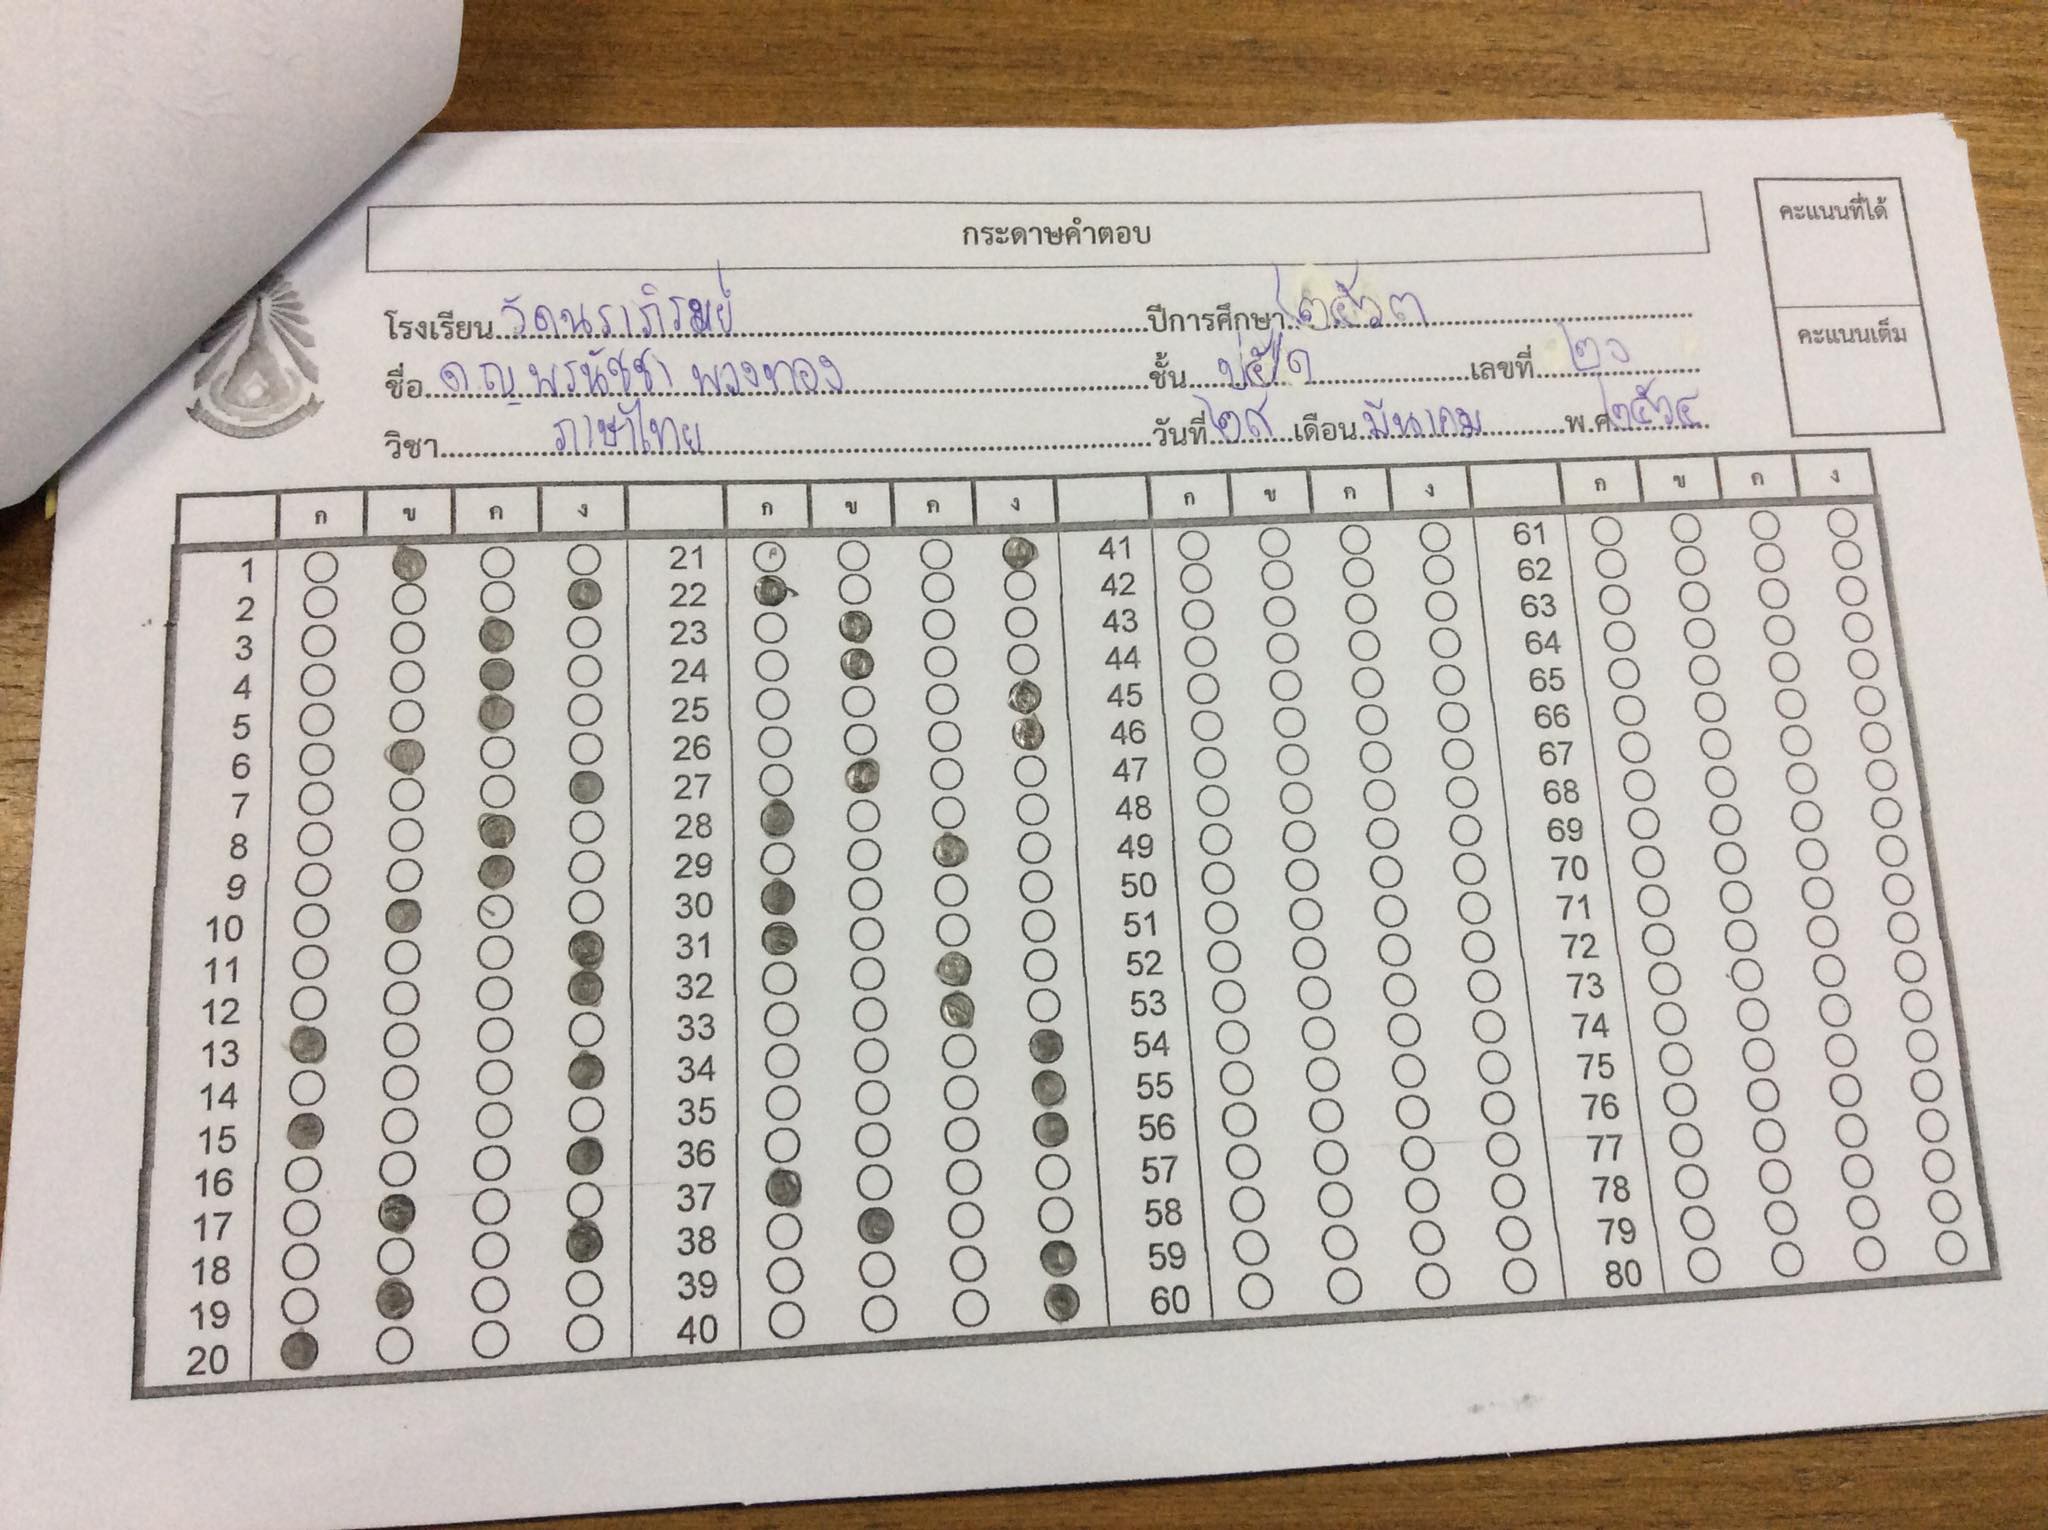 กระดาษคำตอบ
คะแนนที่ได้
คะแนนเต็ม
โรงเรียน วัดนราภิรมย์ ปีการศึกษา ๒๕๖๓
ชื่อ ด.ญ. พรนัชชา พวงทอง ชั้น ป.๕/๑ เลขที่
วิชา ภาษาไทย วันที่ ๒๙ เดือน มีนาคม พ.ศ. ๒๕๖๔
ก ข ค ง ก ข ค ง ก ข ค ง ก ข ค ง
1 21 41 61
2 22 42 62
3 23 43 63
4 24 44 64
5 25 45 65
6 26 46 66
7 27 47 67
8 28 48 68
9 29 49 69
10 30 50 70
11 31 51 71
12 32 52 72
13 33 53 73
14 34 54 74
15 35 55 75
16 36 56 76
17 37 57 77
18 38 58 78
19 39 59 79
20 40 60 80